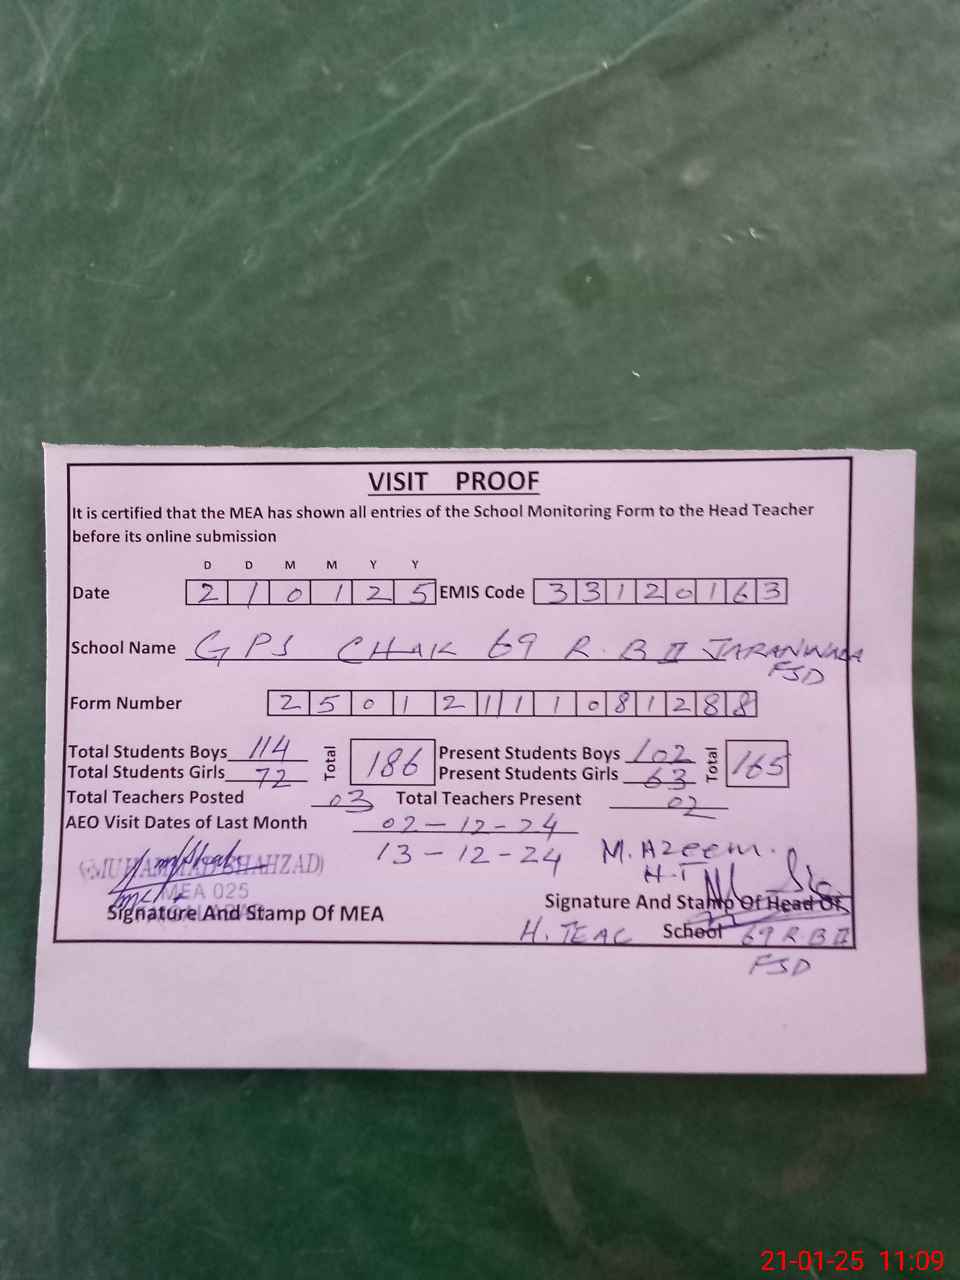 VISIT PROOF
It is certified that the MEA has shown all entries of the School Monitoring Form to the Head Teacher
before its online submission
D D M M Y Y
Date 2 1 0 1 2 5 EMIS Code 3 3 1 2 0 1 6 3
School Name GPS CHAK 69 R.B II JARANWALA
FSD
Form Number 2 5 0 1 2 1 1 1 0 8 1 2 8 8
Total Students Boys 114 Total 186 Present Students Boys 102 Total 165
Total Students Girls 72 Present Students Girls 63
Total Teachers Posted 03 Total Teachers Present 02
AEO Visit Dates of Last Month 02-12-24
13-12-24 M. Azeem.
(MUHAMMAD SHAHZAD) H.T
MEA 025
Signature And Stamp Of MEA Signature And Stamp Of Head Of
H. TEAC School 69 R B II
FSD
21-01-25 11:09